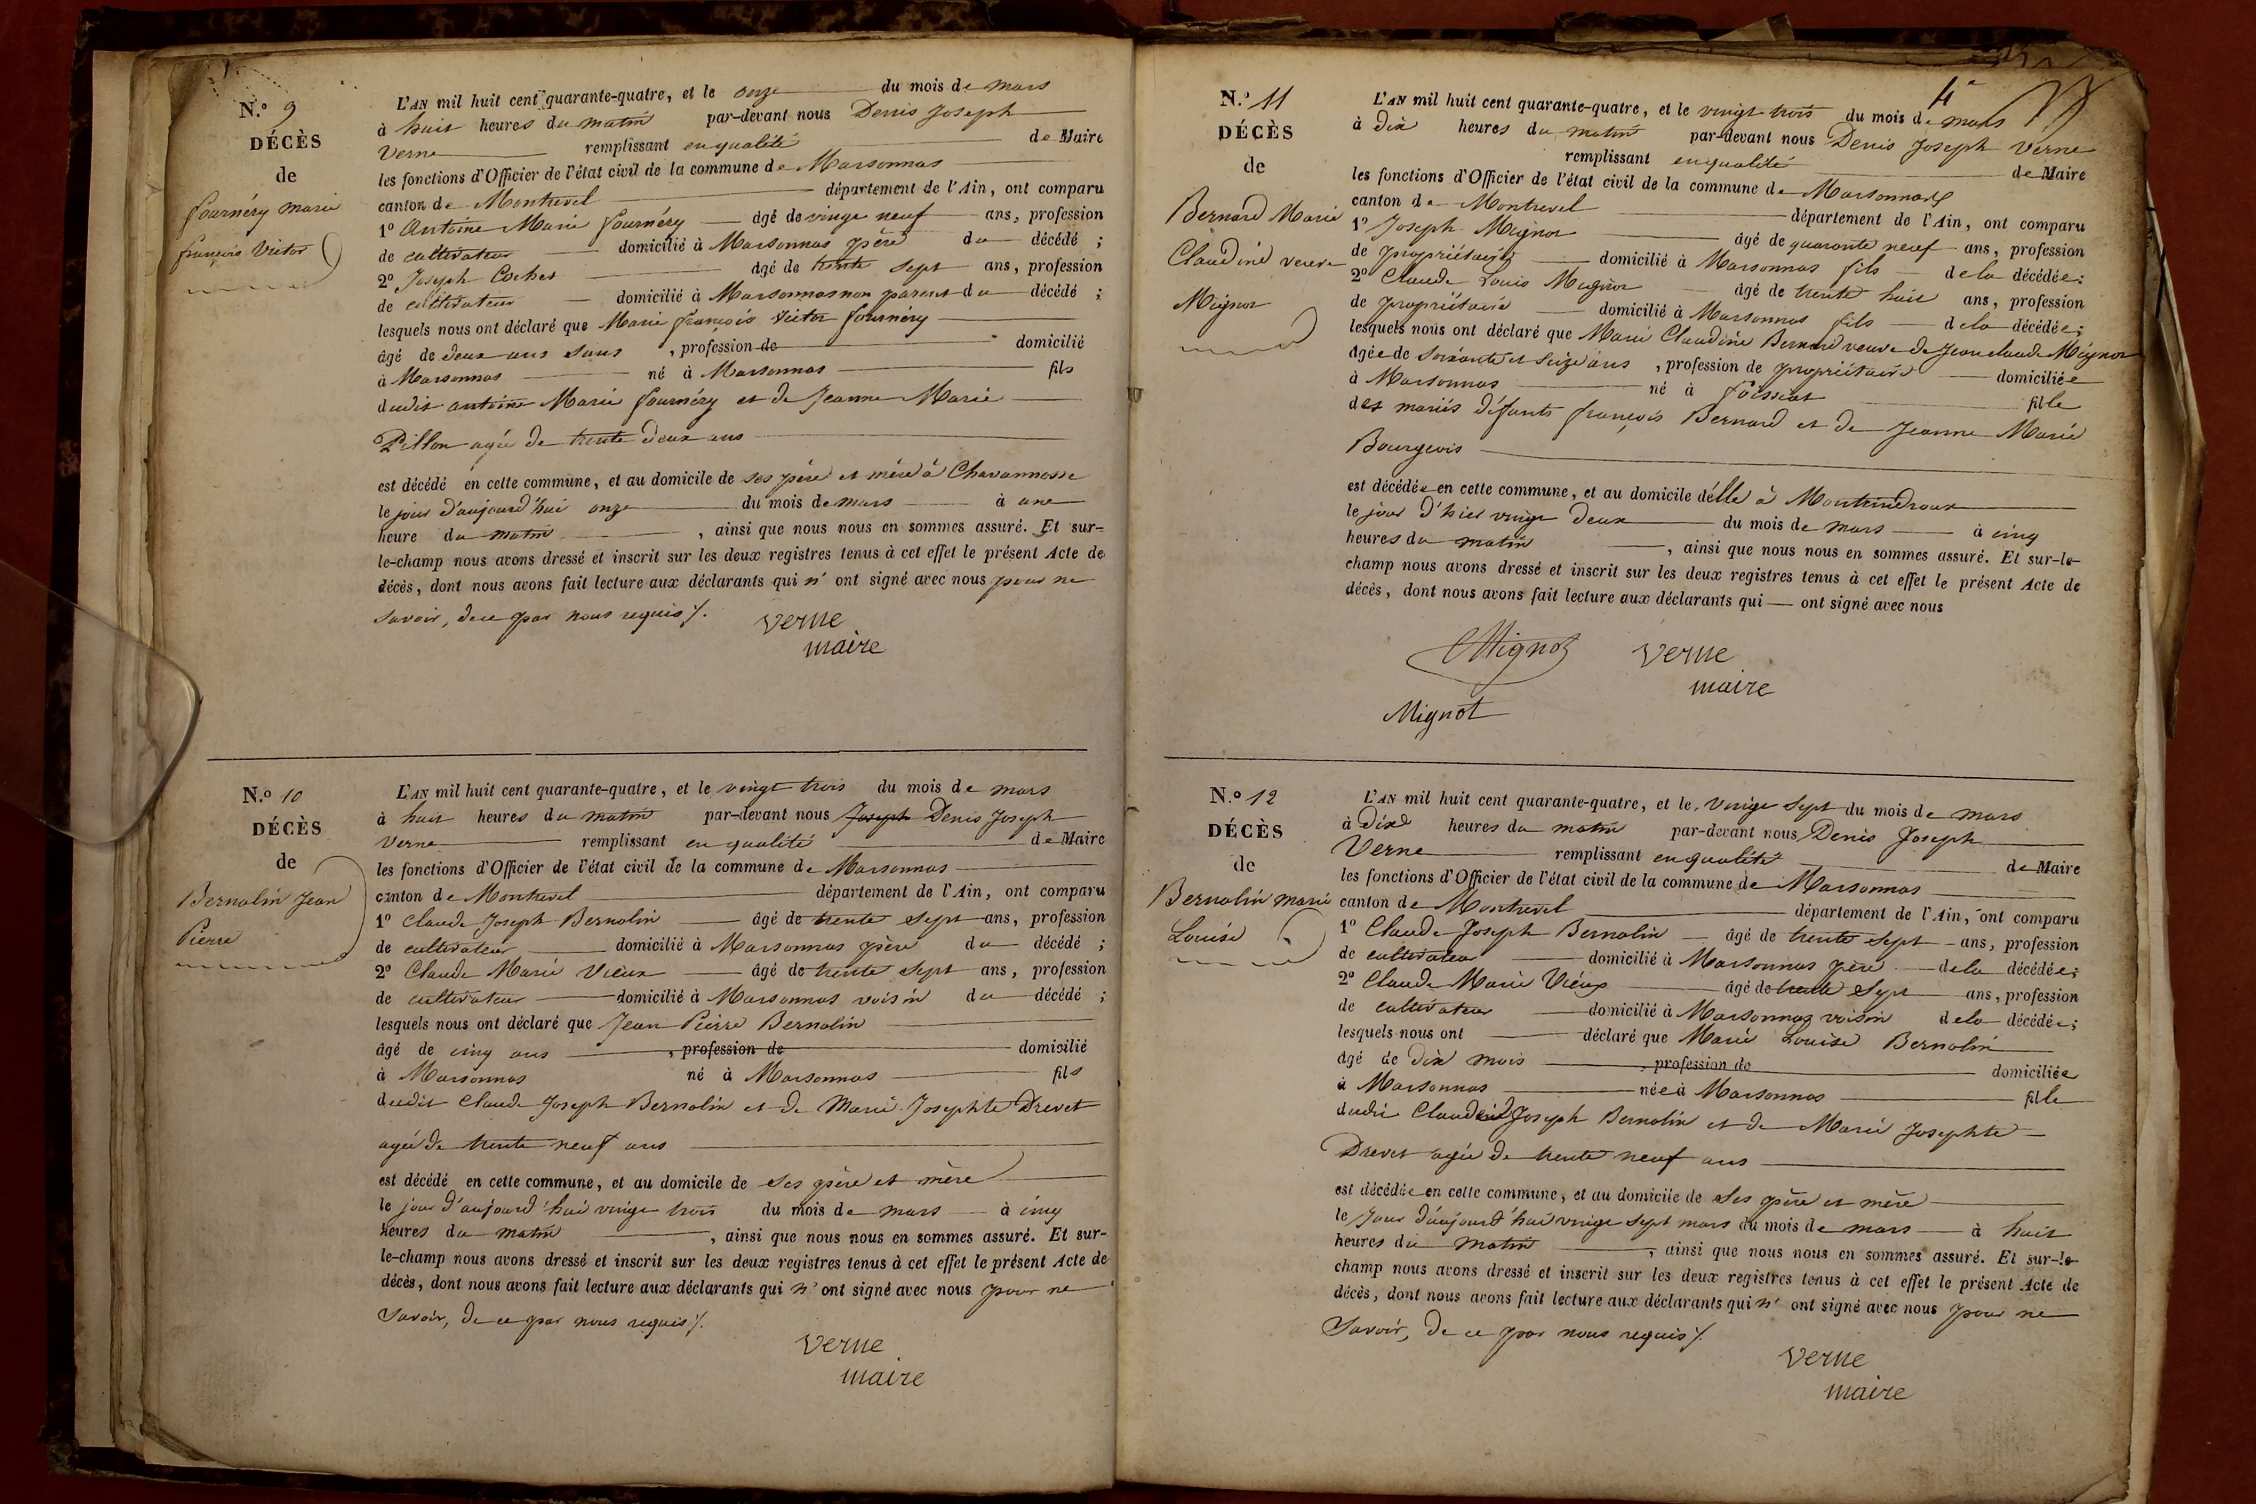 N.o 9
DÉCÈS
de
fournéry marie
françois Victor
L'AN mil huit cent quarante-quatre, et le onze du mois de mars
à huit heures du matin par-devant nous Denis Joseph
Verne remplissant en qualité de Maire
les fonctions d'Officier de l'état civil de la commune de Marsonnas
canton de Montrevel département de l'Ain, ont comparu
1o Antoine Marie fournéry âgé de vingt neuf ans, profession
de cultivateur domicilié à Marsonnas père du décédé ;
2o Joseph Cochet âgé de trente sept ans, profession
de cultivateur domicilié à Marsonnas non parent du décédé ;
lesquels nous ont déclaré que Marie françois Victor fournery
âgé de deux ans sans , profession de domicilié
à Marsonnas né à Marsonnas fils
dudit antoine Marie fournéry et de Jeanne Marie
Pillon agée de trente deux ans
est décédé en cette commune, et au domicile de ses père et mère à Chavannosse
le jour d'aujourd'hui onze du mois de mars à une
heure du matin , ainsi que nous nous en sommes assuré. Et sur-
le-champ nous avons dressé et inscrit sur les deux registres tenus à cet effet le présent Acte de
décès, dont nous avons fait lecture aux déclarants qui n' ont signé avec nous pour ne
savoir, de ce par nous requis /.
Verne
maire
N.o 10
DÉCÈS
de
Bernolin Jean
Pierre
L'AN mil huit cent quarante-quatre, et le vingt trois du mois de mars
à huit heures du matin par-devant nous Joseph Denis Joseph
Verne remplissant en qualité de Maire
les fonctions d'Officier de l'état civil de la commune de Marsonnas
canton de Montrevel département de l'Ain, ont comparu
1o Claude Joseph Bernolin âgé de trente sept ans, profession
de cultivateur domicilié à Marsonnas père du décédé ;
2o Claude Marie Vieux âgé de trente sept ans, profession
de cultivateur domicilié à Marsonnas voisin du décédé ;
lesquels nous ont déclaré que Jean Pierre Bernolin
âgé de cinq ans , profession de domicilié
à Marsonnas né à Marsonnas fils
dudit Claude Joseph Bernolin et de Marie Josephte Drevet
agée de trente neuf ans
est décédé en cette commune, et au domicile de ses père et mère
le jour d'aujourd'hui vingt trois du mois de mars à cinq
heures du matin , ainsi que nous nous en sommes assuré. Et sur-
le-champ nous avons dressé et inscrit sur les deux registres tenus à cet effet le présent Acte de
décès, dont nous avons fait lecture aux déclarants qui n' ont signé avec nous pour ne
savoir, de ce par nous requis /.
Verne
maire
4e
N.o 11
DÉCÈS
de
Bernard Marie
Claudine veuve
Mignot
L'AN mil huit cent quarante-quatre, et le vingt trois du mois de mars
à dix heures du matin par-devant nous Denis Joseph Verne
remplissant en qualité de Maire
les fonctions d'Officier de l'état civil de la commune de Marsonnas
canton de Montrevel département de l'Ain, ont comparu
1o Joseph Mignot âgé de quarante neuf ans, profession
de propriétaire domicilié à Marsonnas fils de la décédée ;
2o Claude Louis Mignot âgé de trente huit ans, profession
de propriétaire domicilié à Marsonnas fils de la décédée ;
lesquels nous ont déclaré que Marie Claudine Bernard veuve de Jean claude Mignot
âgée de soixante et seize ans , profession de propriétaire domiciliée
à Marsonnas né à foissiat fille
des mariés défunts françois Bernard et de Jeanne Marie
Bourgeois
est décédée en cette commune, et au domicile d'elle à Montaindroux
le jour d'hier vingt deux du mois de mars à cinq
heures du matin , ainsi que nous nous en sommes assuré. Et sur-le-
champ nous avons dressé et inscrit sur les deux registres tenus à cet effet le présent Acte de
décès, dont nous avons fait lecture aux déclarants qui ont signé avec nous
Mignot Verne
maire
Mignot
N.o 12
DÉCÈS
de
Bernolin marie
Louise
L'AN mil huit cent quarante-quatre, et le vingt sept du mois de mars
à dix heures du matin par-devant nous Denis Joseph
Verne remplissant en qualité de Maire
les fonctions d'Officier de l'état civil de la commune de Marsonnas
canton de Montrevel département de l'Ain, ont comparu
1o Claude Joseph Bernolin âgé de trente sept ans, profession
de cultivateur domicilié à Marsonnas père de la décédée ;
2o Claude Marie Vieux âgé de trente sept ans, profession
de cultivateur domicilié à Marsonnas voisin de la décédée ;
lesquels nous ont déclaré que Marie Louise Bernolin
âgé de dix mois , profession de domiciliée
à Marsonnas née à Marsonnas fille
dudit Claude Joseph Bernolin et de Marie Josephte
Drevet agée de trente neuf ans
est décédée en cette commune, et au domicile de ses père et mère
le jour d'aujourd'hui vingt sept mars du mois de mars à huit
heures du matin , ainsi que nous nous en sommes assuré. Et sur-le-
champ nous avons dressé et inscrit sur les deux registres tenus à cet effet le présent Acte de
décès, dont nous avons fait lecture aux déclarants qui n' ont signé avec nous pour ne
savoir, de ce par nous requis /.
Verne
maire